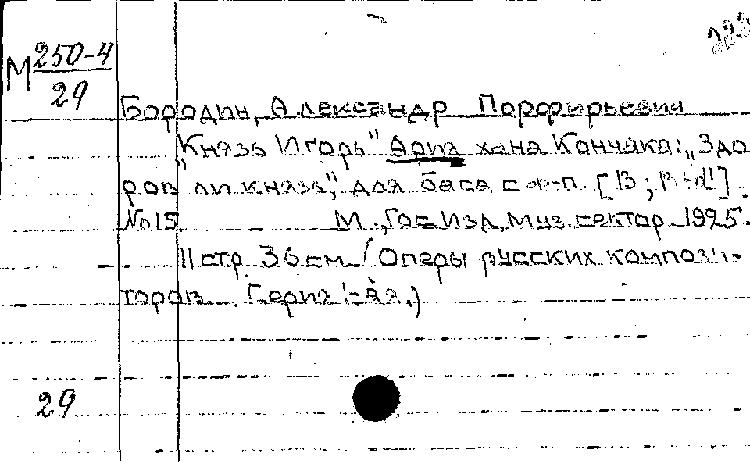 М 250-4
29
Бородин, Александр Порфирьевич
„Князь Игорь" Ария хана Кончака: „Здо
ров ли князь", для баса с ф-п. [B;
№15 М., Гос Изд. муз. сектор 1925.
11 стр. 36 см. (Оперы русских компози-
торов. Серия 1-ая.)
29